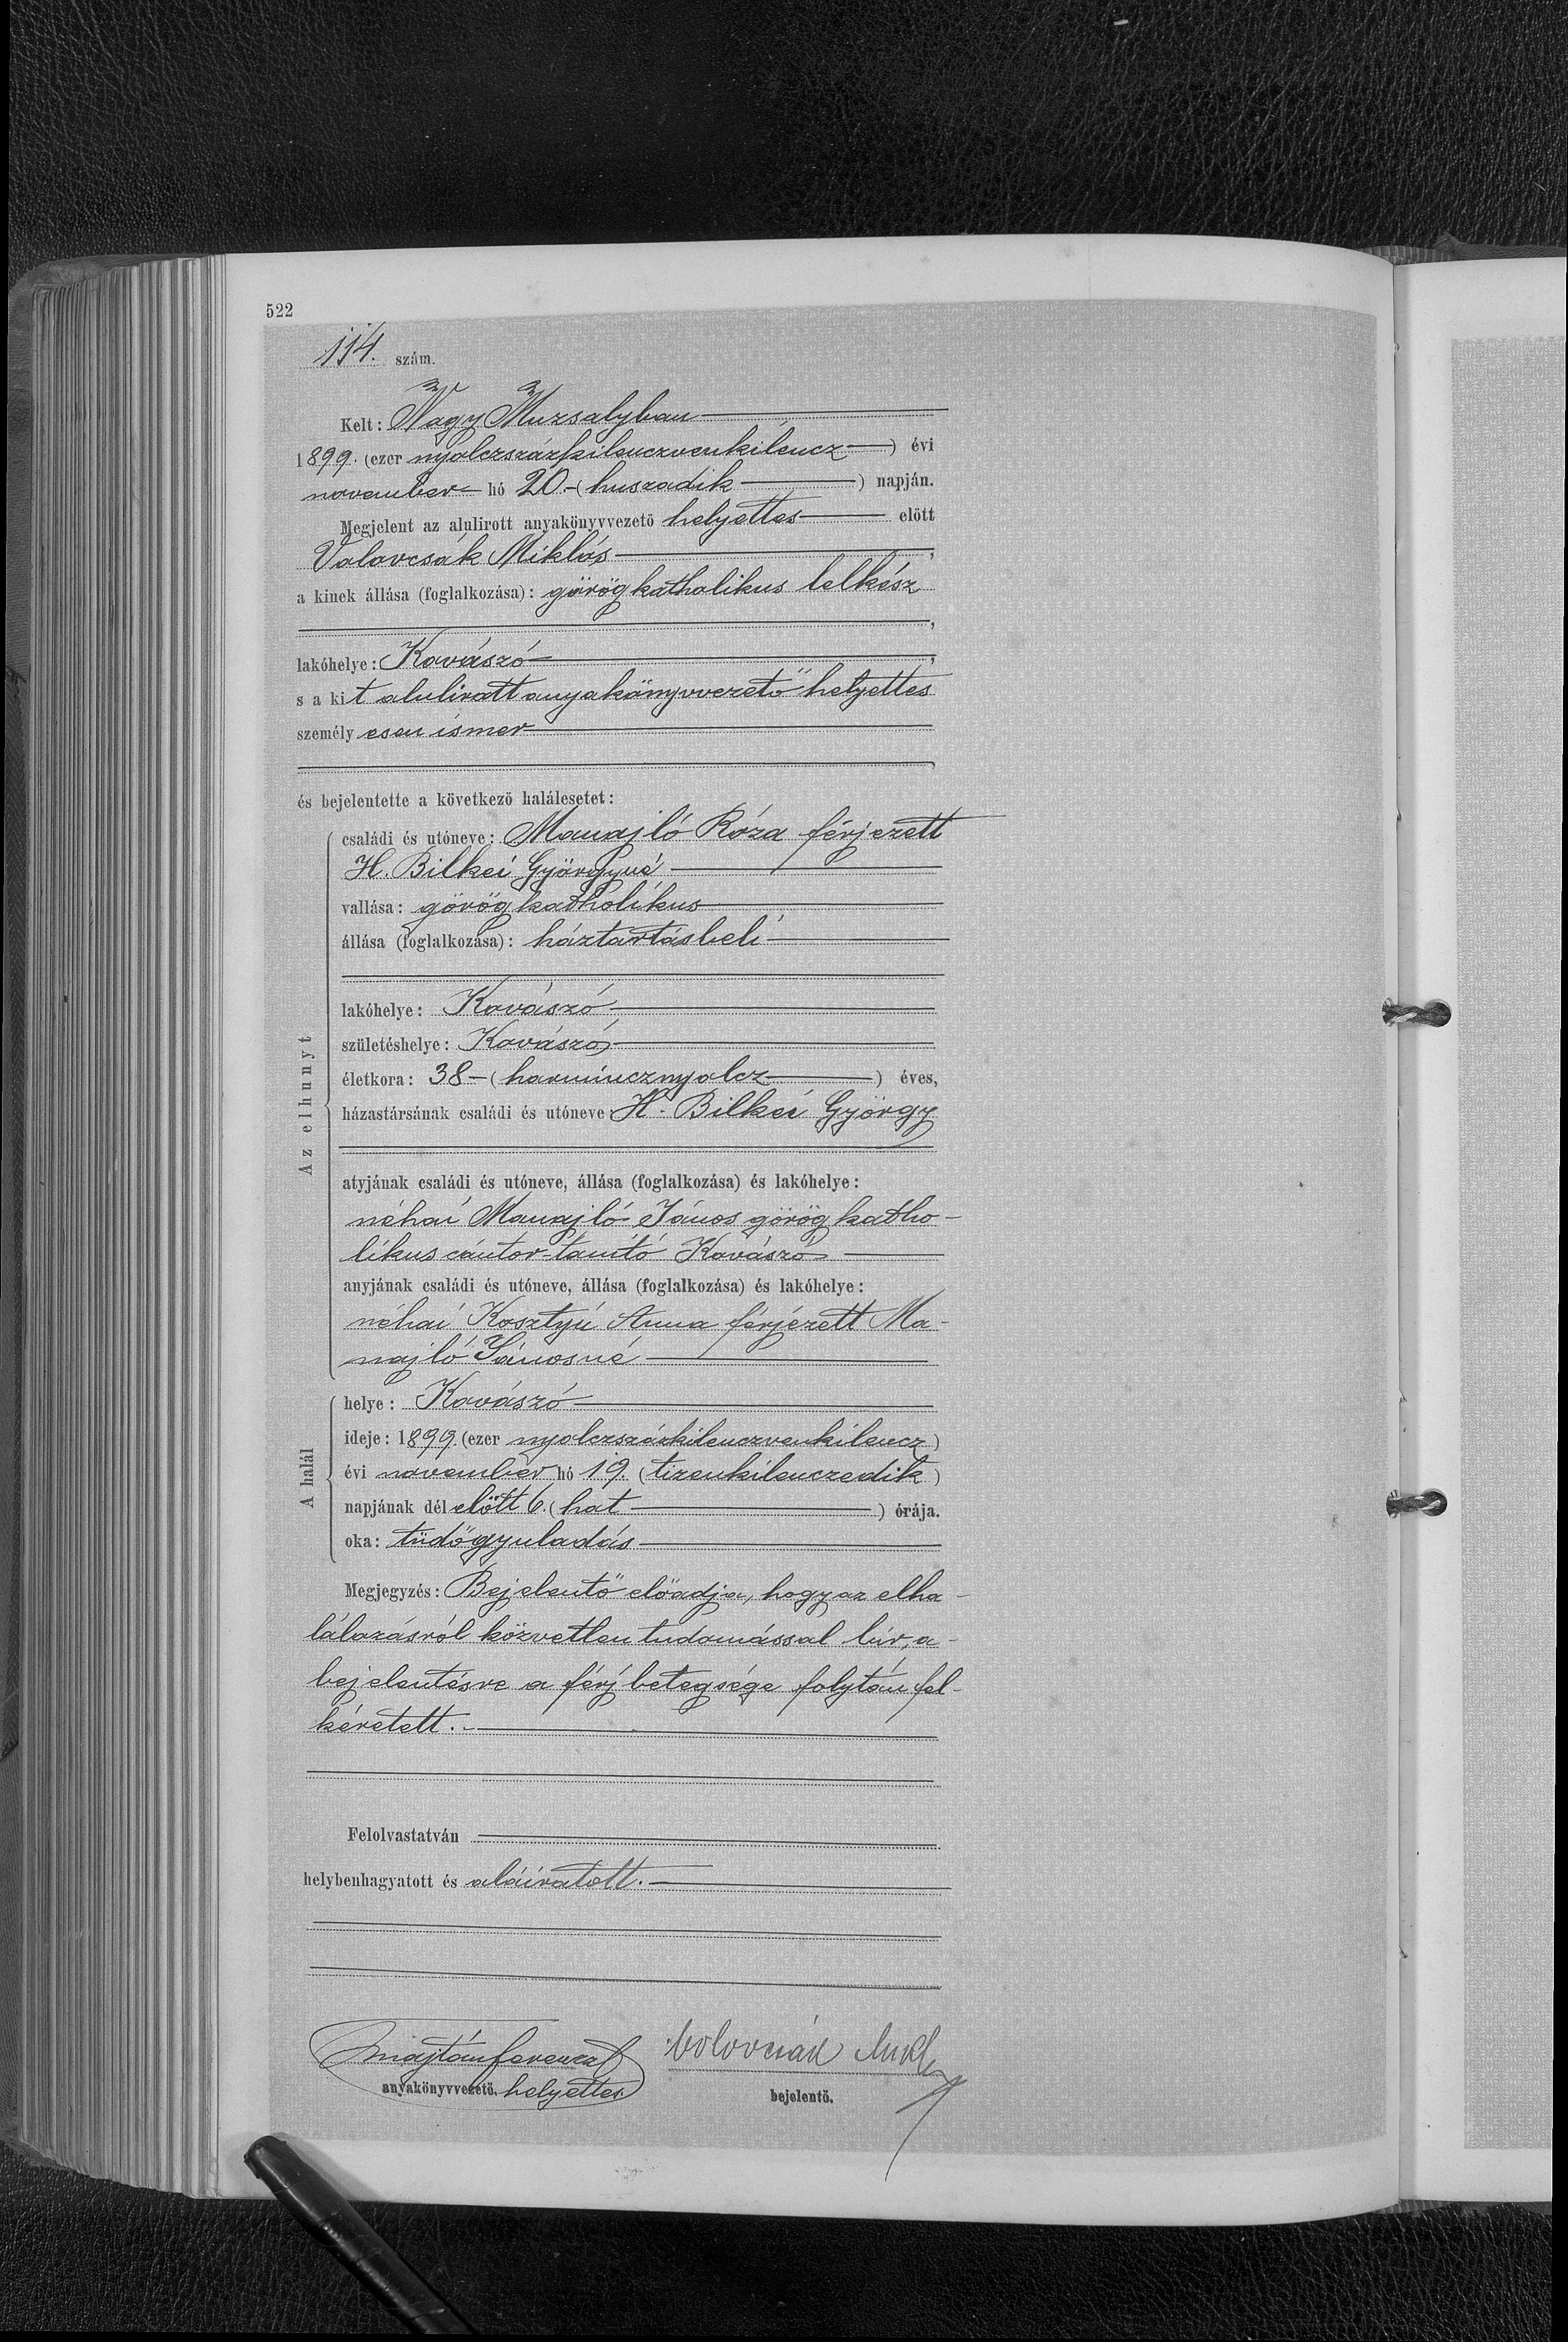 522
114. szám.
Kelt: Nagy Muzsalyban
1899. (ezer nyolczszázkilenczvenkilencz) évi
november hó 20. (huszadik) napján.
Megjelent az alulirott anyakönyvvezető helyettes előtt
Volovcsák Miklós,
a kinek állása (foglalkozása): görög katholikus lelkész
,
lakóhelye: Kovászó,
s a kit alulirott anyakönyvvezető helyettes
személyesen ismer
,
és bejelentette a következő halálesetet:
Az elhunyt
családi és utóneve: Manajló Róza férjezett
H. Bilkei Györgyné
vallása: görög katholikus
állása (foglalkozása): háztartásbeli
lakóhelye: Kovászó
születéshelye: Kovászó
életkora: 38 (harmincznyolcz) éves,
házastársának családi és utóneve: H. Bilkei György
atyjának családi és utóneve, állása (foglalkozása) és lakóhelye:
néhai Manajló János görög katho-
likus cántor-tanító Kovászó
anyjának családi és utóneve, állása (foglalkozása) és lakóhelye:
néhai Kosztyú Anna férjezett Ma-
najló Jánosné
A halál
helye: Kovászó
ideje: 1899. (ezer nyolczszázkilenczvenkilencz)
évi november hó 19. (tizenkilenczedik)
napjának dél előtt 6. (hat) órája.
oka: tüdőgyuladás
Megjegyzés: Bejelentő előadja, hogy az elha-
lálozásról közvetlen tudomással bír, a
bejelentésre a férj betegsége folytán fel-
kéretett.
Felolvastatván
helybenhagyatott és aláíratott.
Majtán Ferencz Volovcsák Mikl
anyakönyvvezető. helyettes bejelentő.